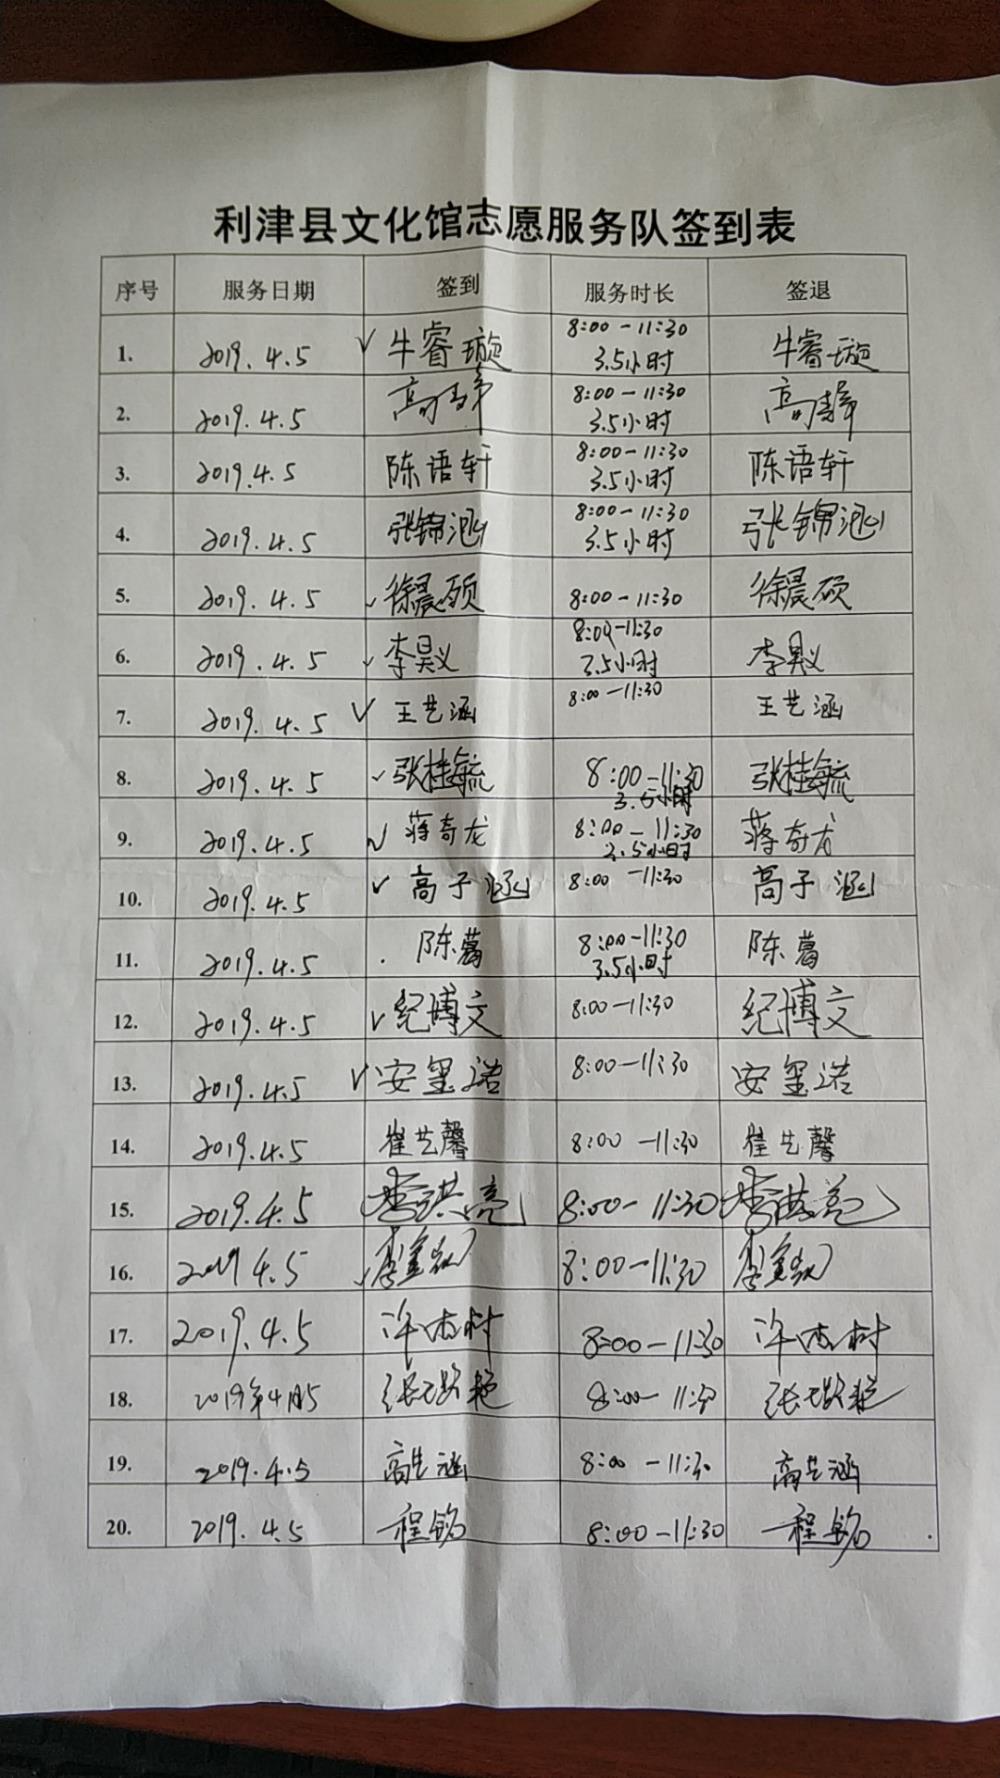 利津县文化馆志愿服务队签到表
序号 服务日期 签到 服务时长 签退
1. 2019.4.5 √ 牛睿璇 8:00-11:30 3.5小时 牛睿璇
2. 2019.4.5 高静 8:00-11:30 3.5小时 高静
3. 2019.4.5 陈语轩 8:00-11:30 3.5小时 陈语轩
4. 2019.4.5 张锦涵 8:00-11:30 3.5小时 张锦涵
5. 2019.4.5 √ 徐晨硕 8:00-11:30 徐晨硕
6. 2019.4.5 √ 李昊义 8:00-11:30 3.5小时 李昊义
7. 2019.4.5 √ 王艺涵 8:00-11:30 王艺涵
8. 2019.4.5 √ 张桂毓 8:00-11:30 3.5小时 张桂毓
9. 2019.4.5 √ 蒋奇龙 8:00-11:30 3.5小时 蒋奇龙
10. 2019.4.5 √ 高子涵 8:00-11:30 高子涵
11. 2019.4.5 陈葛 8:00-11:30 3.5小时 陈葛
12. 2019.4.5 √ 纪博文 8:00-11:30 纪博文
13. 2019.4.5 √ 安玺诺 8:00-11:30 安玺诺
14. 2019.4.5 崔艺馨 8:00-11:30 崔艺馨
15. 2019.4.5 李洪亮 8:00-11:30 李洪亮
16. 2019.4.5 √ 8:00-11:30
17. 2019.4.5 许杏村 8:00-11:30 许杏村
18. 2019年4月5 8:00-11:30
19. 2019.4.5 高艺涵 8:00-11:30 高艺涵
20. 2019.4.5 程铭 8:00-11:30 程铭